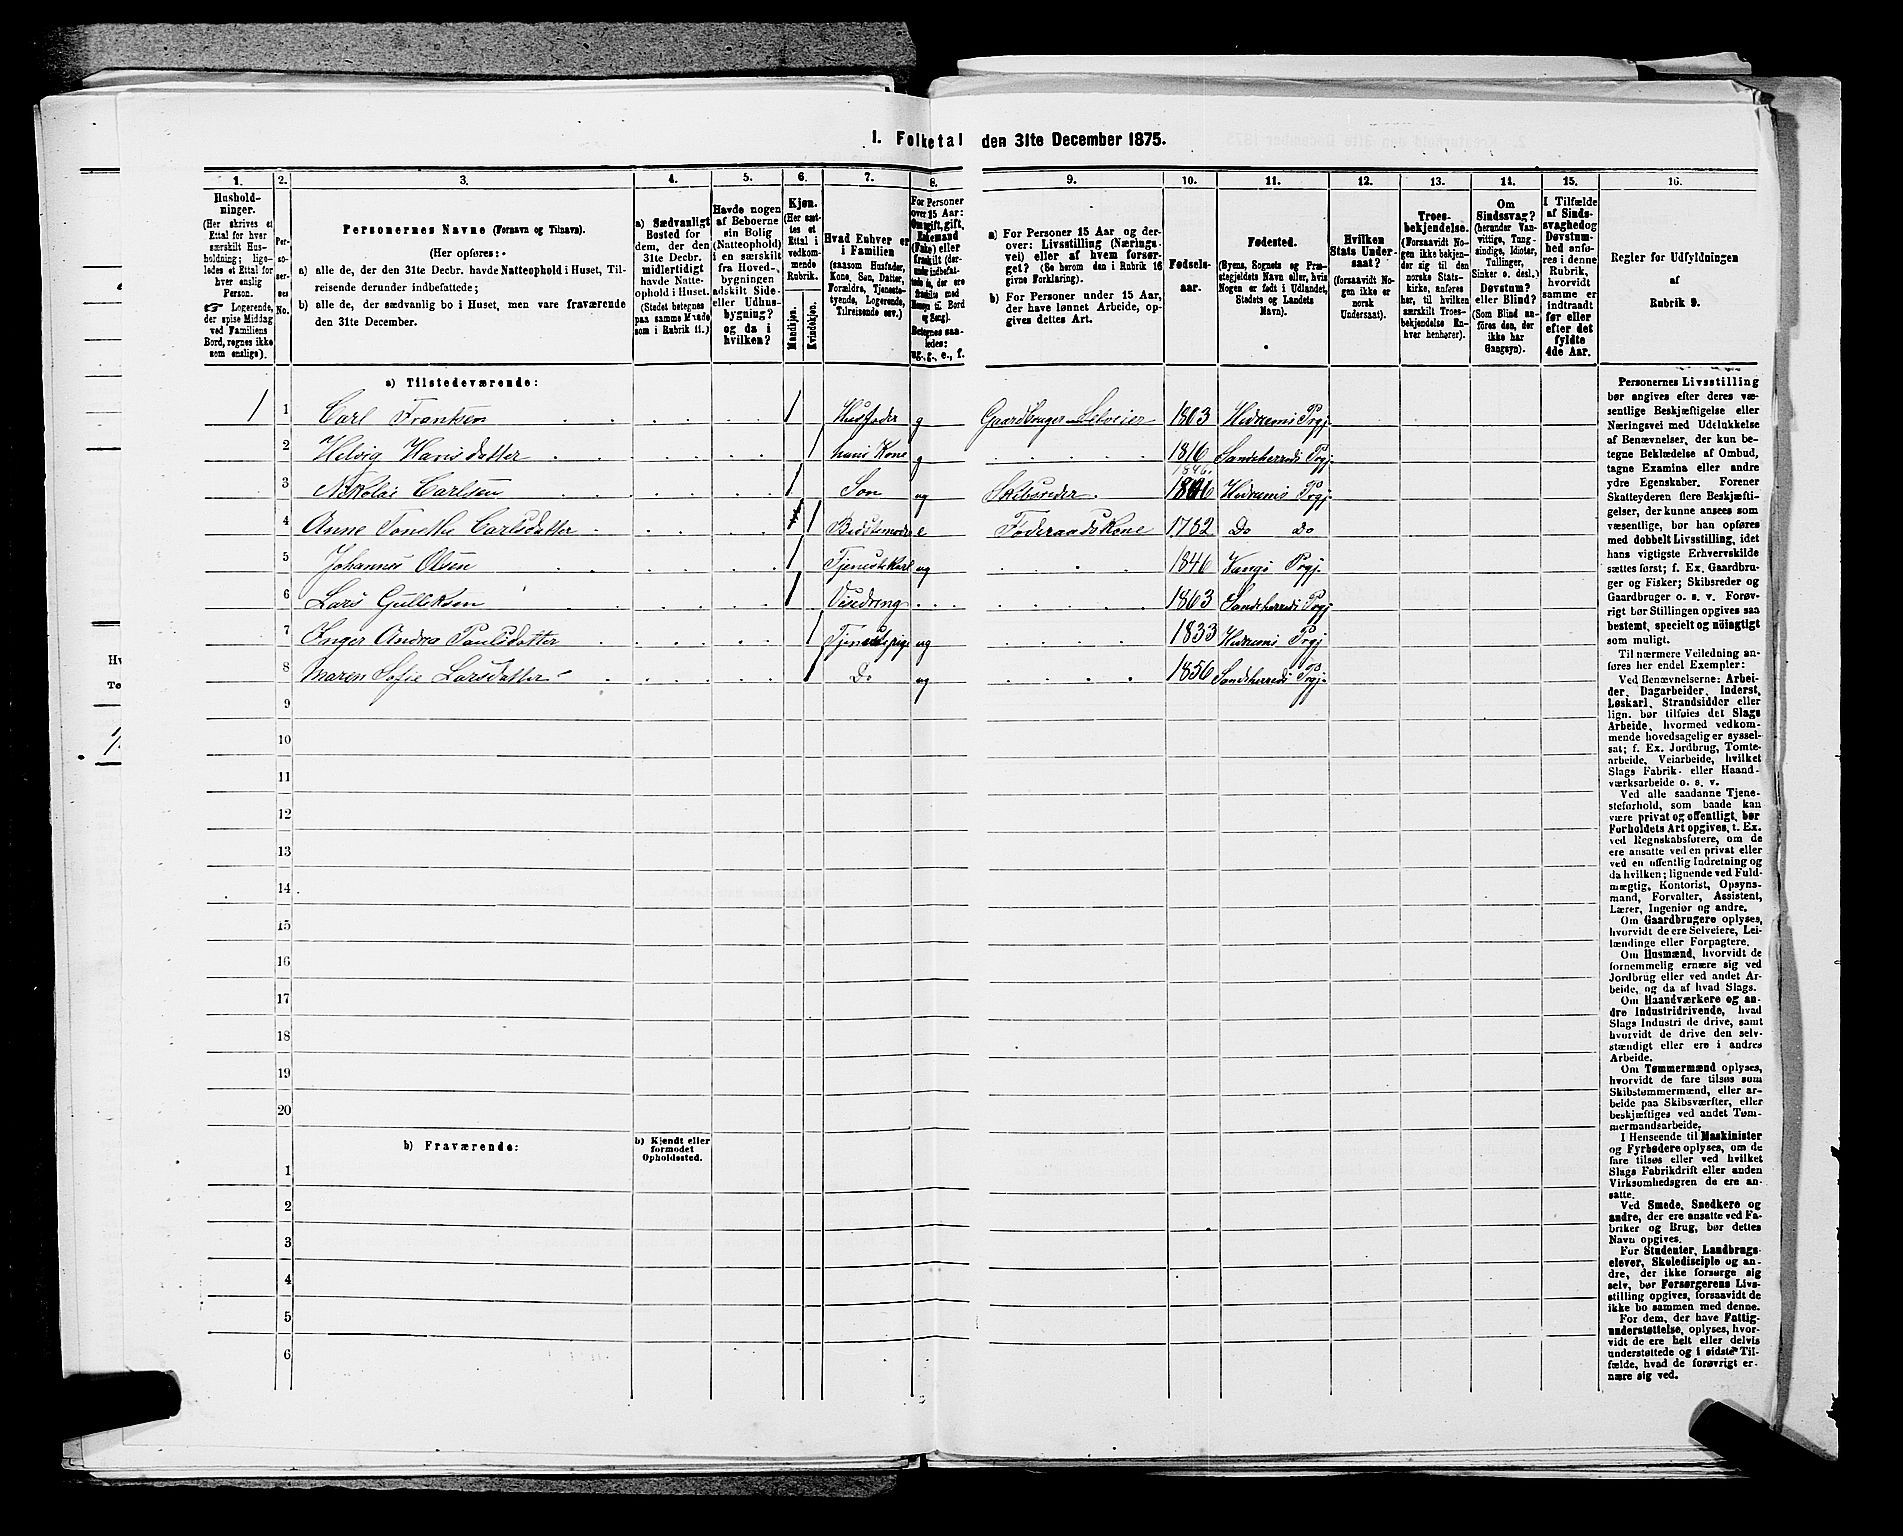 I. Folketal den 31te December 1875.
1. 2. 3. 4. 5. 6. 7. 8. 9. 10. 11. 12. 13. 14. 15. 16.
Husholdninger.
(Her skrives et
Ettal for hver
særskilt Husholdning; ligeledes
et Ettal for
hver enslig
Person.
☞ Logerende,
der spise Middag
ved Familiens
Bord, regnes ikke
som enslige).
Personernes No.
Personernes Navne (Fornavn og Tilnavn).
(Her opføres:
a) alle de, der den 31te Decbr. havde Natteophold i Huset, Tilreisende
derunder indbefattede;
b) alle de, der sædvanlig bo i Huset, men vare fraværende
den 31te December.
a) Sædvanligt
Bosted for
dem, der den
31te Decbr.
midlertidigt
havde Natteophold
i Huset.
(Stedet betegnes
paa samme Maade
som i Rubrik 11.)
Havde nogen
af Beboerne
sin Bolig
(Natteophold)
i en særskilt
fra Hovedbygningen
adskilt Side-
eller Udhusbygning?
og da i
hvilken?
Kjøn.
(Her sættes
et
Ettal i
vedkommende
Rubrik.
Mandkjøn.
Kvindekjøn.
Hvad Enhver er
i Familien
(saasom Husfader,
Kone, Søn, Datter,
Forældre, Tjenestetyende,
Logerende,
Tilreisende osv.)
For Personer
over 15 Aar:
Om ugift, gift,
Enkemand
(Enke) eller
fraskilt
Betegnes saaledes:
ug., g., e., f.
a) For Personer 15 Aar og derover:
Livsstilling (Næringsvei)
eller af hvem forsørget?
(Se herom den i Rubrik 16
givne Forklaring).
b) For Personer under 15 Aar,
der have lønnet Arbeide, opgives
dettes Art.
Fødselsaar.
Fødested.
(Byens, Sognets og Præstegjeldets
Navn eller, hvis
Nogen er født i Udlandet,
Stedets og Landets
Navn).
Hvilken
Stats Undersaat?
(forsaavidt Nogen
ikke er
norsk
Undersaat).
Troesbekjendelse.
(Forsaavidt Nogen
ikke bekjender
sig til den
norske Statskirke,
anføres
her, til hvilken
særskilt Troesbekjendelse
Enhver
henhører).
Om
Sindssvag?
(herunder Vanvittige,
Tungsindige,
Idioter,
Tullinger,
Sinker o. desl.)
Døvstum?
eller Blind?
(Som Blind anføres
den, der
ikke har
Gangsyn).
I Tilfælde
af Sindssvaghed
og
Døvstumhed
anføres
i denne
Rubrik,
hvorvidt
samme er
indtraadt
før eller
efter det
fyldte
4de Aar.
Regler for Udfyldningen
af
Rubrik 9.
a) Tilstedeværende:
1 1 Carl Frantsen 1 Husfader g Gaardbruger Selveier 1803 Hedrums Prgj
2 Helvig Hansdatter 1 hans Kone g 1816 Sandeherreds Prgj.
1846.
3 Nikolai Carlsen 1 Søn ug Skibsreder. 1846 Hedrums Prgj
4 Anne Tonette Carlsdatter 1 Bedstemoder e Føderaadskone 1782 Do Do
5 Johannes Olsen 1 Tjenestekarl ug 1846 Prgj.
6 Lars Gulleksen 1 Visedreng 1863 Sandeherreds Prgj.
7 Inger Andrea Paulsdatter 1 Tjenestepige ug 1833 Hedrums Prgj
8 Maren Sofie Larsdatter 1 Do ug 1856 Sandeherreds Prgj.
9
10
11
12
13
14
15
16
17
18
19
20
b) Fraværende:
b) Kjendt eller
formodet
Opholdssted.
1
2
3
4
5
6
Personernes Livsstilling
bør angives efter deres væsentlige
Beskjæftigelse eller
Næringsvei med Udelukkelse
af Benævnelser, der kun betegne
Beklædelse af Ombud,
tagne Examina eller andre
ydre Egenskaber. Forener
Skatteyderen flere Beskjæftigelser,
der kunne ansees som
væsentlige, bør han opføres
med dobbelt Livsstilling, idet
hans vigtigste Erhvervskilde
sættes først; f. Ex. Gaardbruger
og Fisker; Skibsreder og
Gaardbruger o. s. v. Forøvrigt
bør Stillingen opgives saa
bestemt, specielt og nøiagtigt
som muligt.
Til nærmere Veiledning anføres
her endel Exempler:
Ved Benævnelserne: Arbeider,
Dagarbeider, Inderst,
Løskarl, Strandsidder eller
lign. bør tilføies det Slags
Arbeide, hvormed vedkommende
hovedsagelig er sysselsat;
f. Ex. Jordbrug, Tomtearbeide,
Veiarbeide, hvilket
Slags Fabrik- eller Haandværksarbeide
o. s. v.
Ved alle saadanne Tjenesteforhold,
som baade kan
være privat og offentligt, bør
Forholdets Art opgives, t. Ex.
ved Regnskabsførere, om de
ere ansatte ved en privat eller
ved en offentlig Indretning og
da hvilken; lignende ved Fuldmægtig,
Kontorist, Opsynsmand,
Forvalter, Assistent,
Lærer, Ingeniør og andre.
Om Gaardbrugere oplyses,
hvorvidt de ere Selveiere, Leilændinge
eller Forpagtere.
Om Husmænd, hvorvidt de
fornemmelig ernære sig ved
Jordbrug eller ved andet Arbeide,
og da af hvad Slags.
Om Haandværkere og andre
Industridrivende, hvad
Slags Industri de drive, samt
hvorvidt de drive den selvstændigt
eller ere i andres
Arbeide.
Om Tømmermænd oplyses,
hvorvidt de fare tilsøs som
Skibstømmermænd, eller arbeide
paa Skibsværfter, eller
beskjæftiges ved andet Tømmermandsarbeide.
I Henseende til Maskinister
og Fyrbødere oplyses, om de
fare tilsøs eller ved hvilket
Slags Fabrikdrift eller anden
Virksomhedsgren de ere ansatte.
Ved Smede, Snedkere og
andre, der ere ansatte ved Fabriker
og Brug, bør dettes
Navn opgives.
For Studenter, Landbrugselever,
Skoledisciple og andre,
der ikke forsørge sig
selv, bør Forsørgerens Livsstilling
opgives, forsaavidt de
ikke bo sammen med denne.
For dem, der have Fattigunderstøttelse,
oplyses, hvorvidt
de ere helt eller delvis
understøttede og i sidste Tilfælde,
hvad de forøvrigt ernære
sig ved.